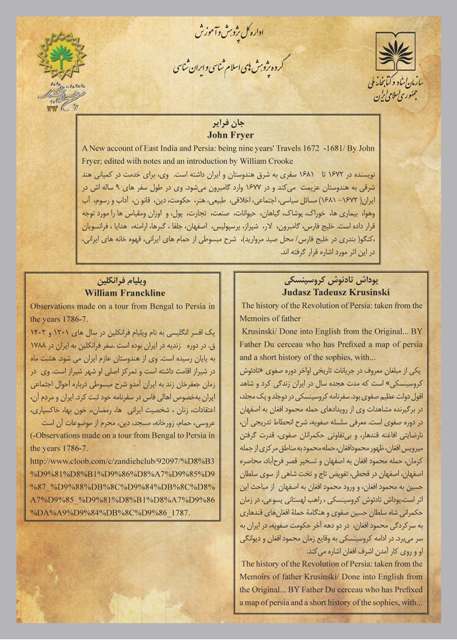 اداره کل پژوهش و آموزش
گروه پژوهش های اسلام شناسی و ایران شناسی
سازمان اسناد و کتابخانه ملی
جمهوری اسلامی ایران
جان فرایر
John Fryer
A New account of East India and Persia: being nine years' Travels 1672 -1681/ By John
Fryer; edited wiith notes and an introduction by William Crooke
نویسنده در ۱۶۷۲ تا ۱۶۸۱ سفری به شرق هندوستان و ایران داشته است. وی، برای خدمت در کمپانی هند
شرقی به هندوستان عزیمت می‌کند و در ۱۶۷۷ وارد گامبرون می‌شود. وی در طول سفر های ۹ ساله اش در
ایران( ۱۶۷۲- ۱۶۸۱) مسائل سیاسی، اجتماعی، اخلاقی، طبیعی، هنر، حکومت، دین، قانون، آداب و رسوم، آب
وهوا، بیماری ها، خوراک، پوشاک، گیاهان، حیوانات، صنعت، تجارت، پول، و اوزان ومقیاس ها را مورد توجه
قرار داده است. خلیج فارس، گامبرون، لار، شیراز، پرسپولیس، اصفهان، جلفا، گبرها، ارامنه، هدایا، فرانسویان
،کنگو( بندری در خلیج فارس/ محل صید مروارید)، شرح مبسوطی از حمام های ایرانی، قهوه خانه های ایرانی،
در این اثر مورد اشاره قرار گرفته اند.
یوداش تادئوش کروسینسکی
Judasz Tadeusz Krusinski
The history of the Revolution of Persia: taken from the
Memoirs of father
Krusinski/ Done into English from the Original... BY
Father Du cerceau who has Prefixed a map of persia
and a short history of the sophies, with...
یکی از مبلغان معروف در جریانات تاریخی اواخر دوره صفوی «تادئوش
کروسینسکی» است که مدت هجده سال در ایران زندگی کرد و شاهد
افول دولت عظیم صفوی بود. سفرنامه کروسینسکی در دوجلد و یک مجلد،
در برگیرنده مشاهدات وی از رویدادهای حمله محمود افغان به اصفهان
در دوره صفوی است. معرفی سلسله صفویه، شرح انحطاط تدریجی آن،
نارضایتی افاغنه قندهار، و بی‌تفاوتی حکمرانان صفوی، قدرت گرفتن
میرویس افغان، ظهور محمودافغان، حمله محمود به مناطق مرکزی از جمله
کرمان، حمله محمود افغان به اصفهان و تسخیر قصر فرح‌آباد، محاصره
اصفهان، اصفهان در قحطی، تفویض تاج و تخت شاهی از سوی سلطان
حسین به محمود افغان، و ورود محمود افغان به اصفهان از مباحث این
اثر است.یوداش تادئوش کروسینسکی ، راهب لهستانی یسوعی، در زمان
حکمرانی شاه سلطان حسین صفوی و هنگامهٔ حملهٔ افغان‌های قندهاری
به سرکردگی محمود افغان، در دو دهه آخر حکومت صفویه، در ایران به
سر می‌برد. در ادامه کروسینسکی به وقایع زمان محمود افغان و دیوانگی
او و روی کار آمدن اشرف افغان اشاره می‌کند.
The history of the Revolution of Persia: taken from the
Memoirs of father Krusinski/ Done into English from
the Original... BY Father Du cerceau who has Prefixed
a map of persia and a short history of the sophies, with...
ویلیام فرانکلین
William Franckline
Observations made on a tour from Bengal to Persia in
the years 1786-7.
یک افسر انگلیسی به نام ویلیام فرانکلین در سال های ۱۲۰۱ و ۱۲۰۲
ق. در دوره زندیه در ایران بوده است .سفر فرانکلین به ایران در ۱۷۸۸
به پایان رسیده است. وی از هندوستان عازم ایران می شود. هشت ماه
در شیراز اقامت داشته است و تمرکز اصلی او شهر شیراز است. وی در
زمان جعفرخان زند به ایران آمدو شرح مبسوطی درباره احوال اجتماعی
ایران بخصوص اهالی فاس در سفرنامه خود ثبت کرد. ایران و مردم آن،
اعتقادات، زنان ، شخصیت ایرانی ها، رمضان، خون بها، خاکسپاری،
عروسی، حمام، زورخانه، مسجد، دین، محرم از موضوعات آن است
(-Observations made on a tour from Bengal to Persia in
the years 1786-7.
http://www.cloob.com/c/zandiehclub/92097/%D8%B3
%D9%81%D8%B1%D9%86%D8%A7%D9%85%D9
%87_%D9%88%DB%8C%D9%84%DB%8C%D8%
A7%D9%85_%D9%81%D8%B1%D8%A7%D9%86
%DA%A9%D9%84%DB%8C%D9%86_1787.